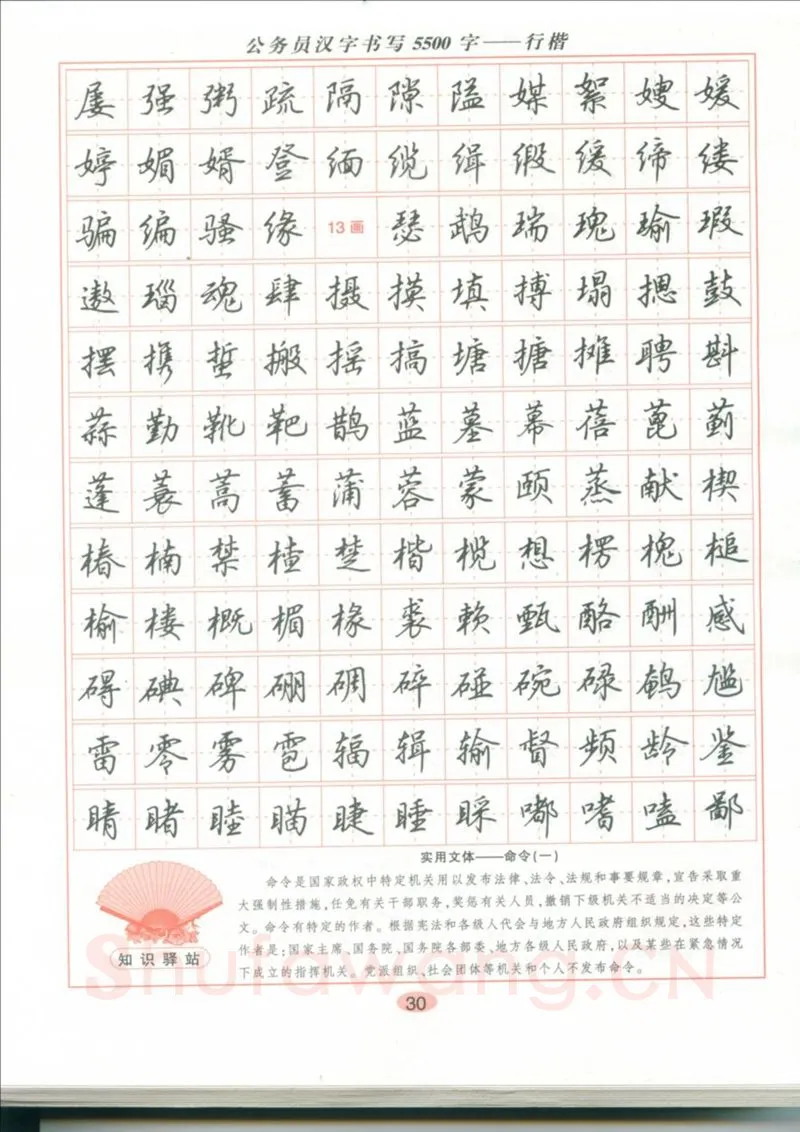 公务员汉字书写5500字——行楷
屡强粥疏隔隙隘媒絮嫂媛
婷媚婿登缅缆缉缎缓缔缕
骗编骚缘13画瑟鹉瑞瑰瑜瑕
遨瑙魂肆摄摸填搏塌摁鼓
摆携蜇搬摇搞塘搪摊聘斟
蒜勤靴靶鹊蓝墓幕蓓蓖蓟
蓬蓑蒿蓄蒲蓉蒙颐蒸献楔
椿楠禁楂楚楷榄想楞槐槌
榆楼概楣椽裘赖甄酪酬感
碍碘碑硼碉碎碰碗碌鹌尴
雷零雾雹辐辑输督频龄鉴
睛睹睦瞄睫睡睬嘟嗜嗑鄙
实用文体——命令(一)
命令是国家政权中特定机关用以发布法律、法令、法规和事要规章,宣告采取重
大强制性措施,任免有关干部职务,奖惩有关人员,撤销下级机关不适当的决定等公
文。命令有特定的作者。根据宪法和各级人代会与地方人民政府组织规定,这些特定
作者是:国家主席、国务院、国务院各部委、地方各级人民政府,以及某些在紧急情况
下成立的指挥机关。党派组织、社会团体等机关和个人不发布命令。
知识驿站
Shufawang.CN
30